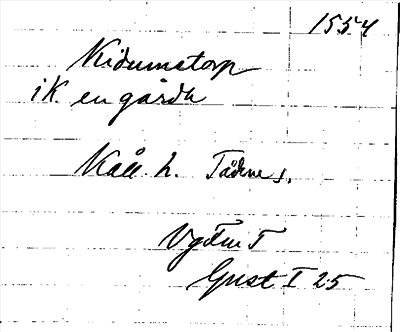 1554
Kidumstorp
i K. en gårdh
Kåll. h. Tådene s.
Vgötm T
Gust I 25